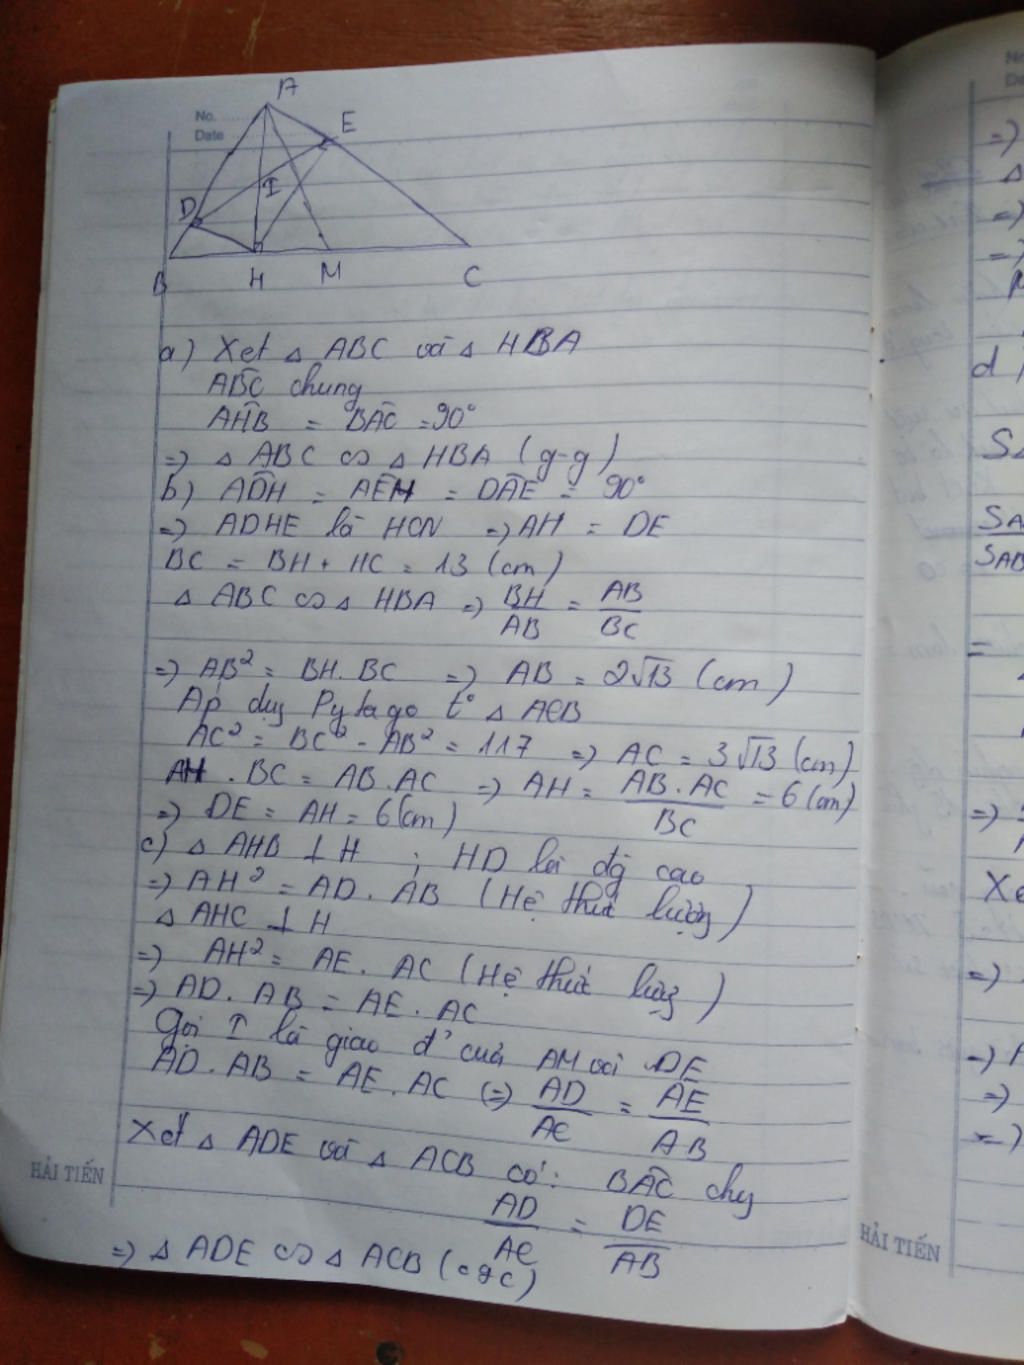 No.
Date
A
E
I
D
B H M C
a) Xet △ ABC và △ HBA
ABC chung
AHB = BAC = 90°
=> △ ABC ∽ △ HBA (g-g)
b) ADH = AEH = DAE = 90°
=> ADHE là HCN => AH = DE
BC = BH + HC = 13 (cm)
△ ABC ∽ △ HBA => BH/AB = AB/BC
=> AB² = BH. BC => AB = 2√13 (cm)
Áp dụg Pytago t° △ ACB
AC² = BC² - AB² = 117 => AC = 3√13 (cm)
AH . BC = AB. AC => AH = AB. AC/BC = 6 (cm)
=> DE = AH = 6 (cm)
c) △ AHB ⊥ H ; HD là đg cao
=> AH² = AD. AB (Hệ thức lượng)
△ AHC ⊥ H
=> AH² = AE. AC (Hệ thức lượg)
=> AD. AB = AE. AC
Gọi I là giao đ' của AM với DE
AD. AB = AE. AC (=) AD/AC = AE/AB
Xét △ ADE và △ ACB có: BAC chg
AD/AC = DE/AB
=> △ ADE ∽ △ ACB (cgc)
HẢI TIẾN
No
Da
=)
△
=)
=)
d
S
SA
SAB
=
=)
Xe
=)
=) A
=)
=)
HẢI TIẾN